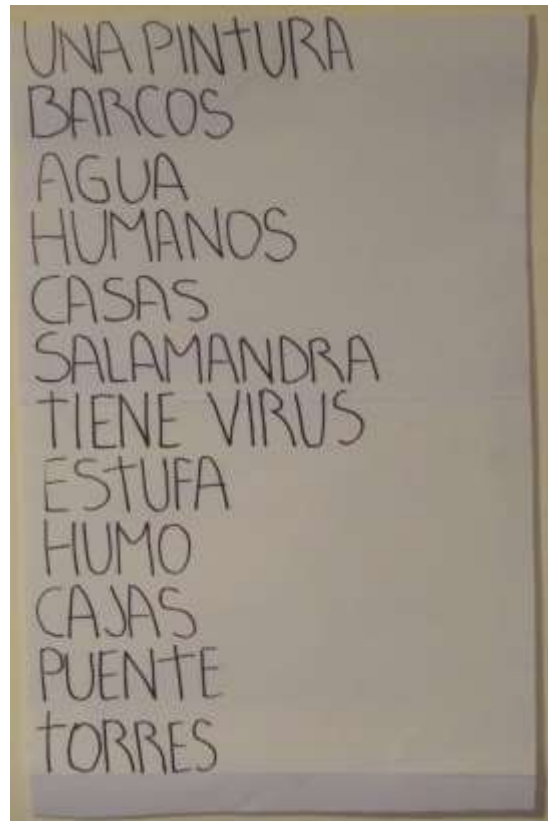 UNA PINTURA
BARCOS
AGUA
HUMANOS
CASAS
SALAMANDRA
TIENE VIRUS
ESTUFA
HUMO
CAJAS
PUENTE
TORRES